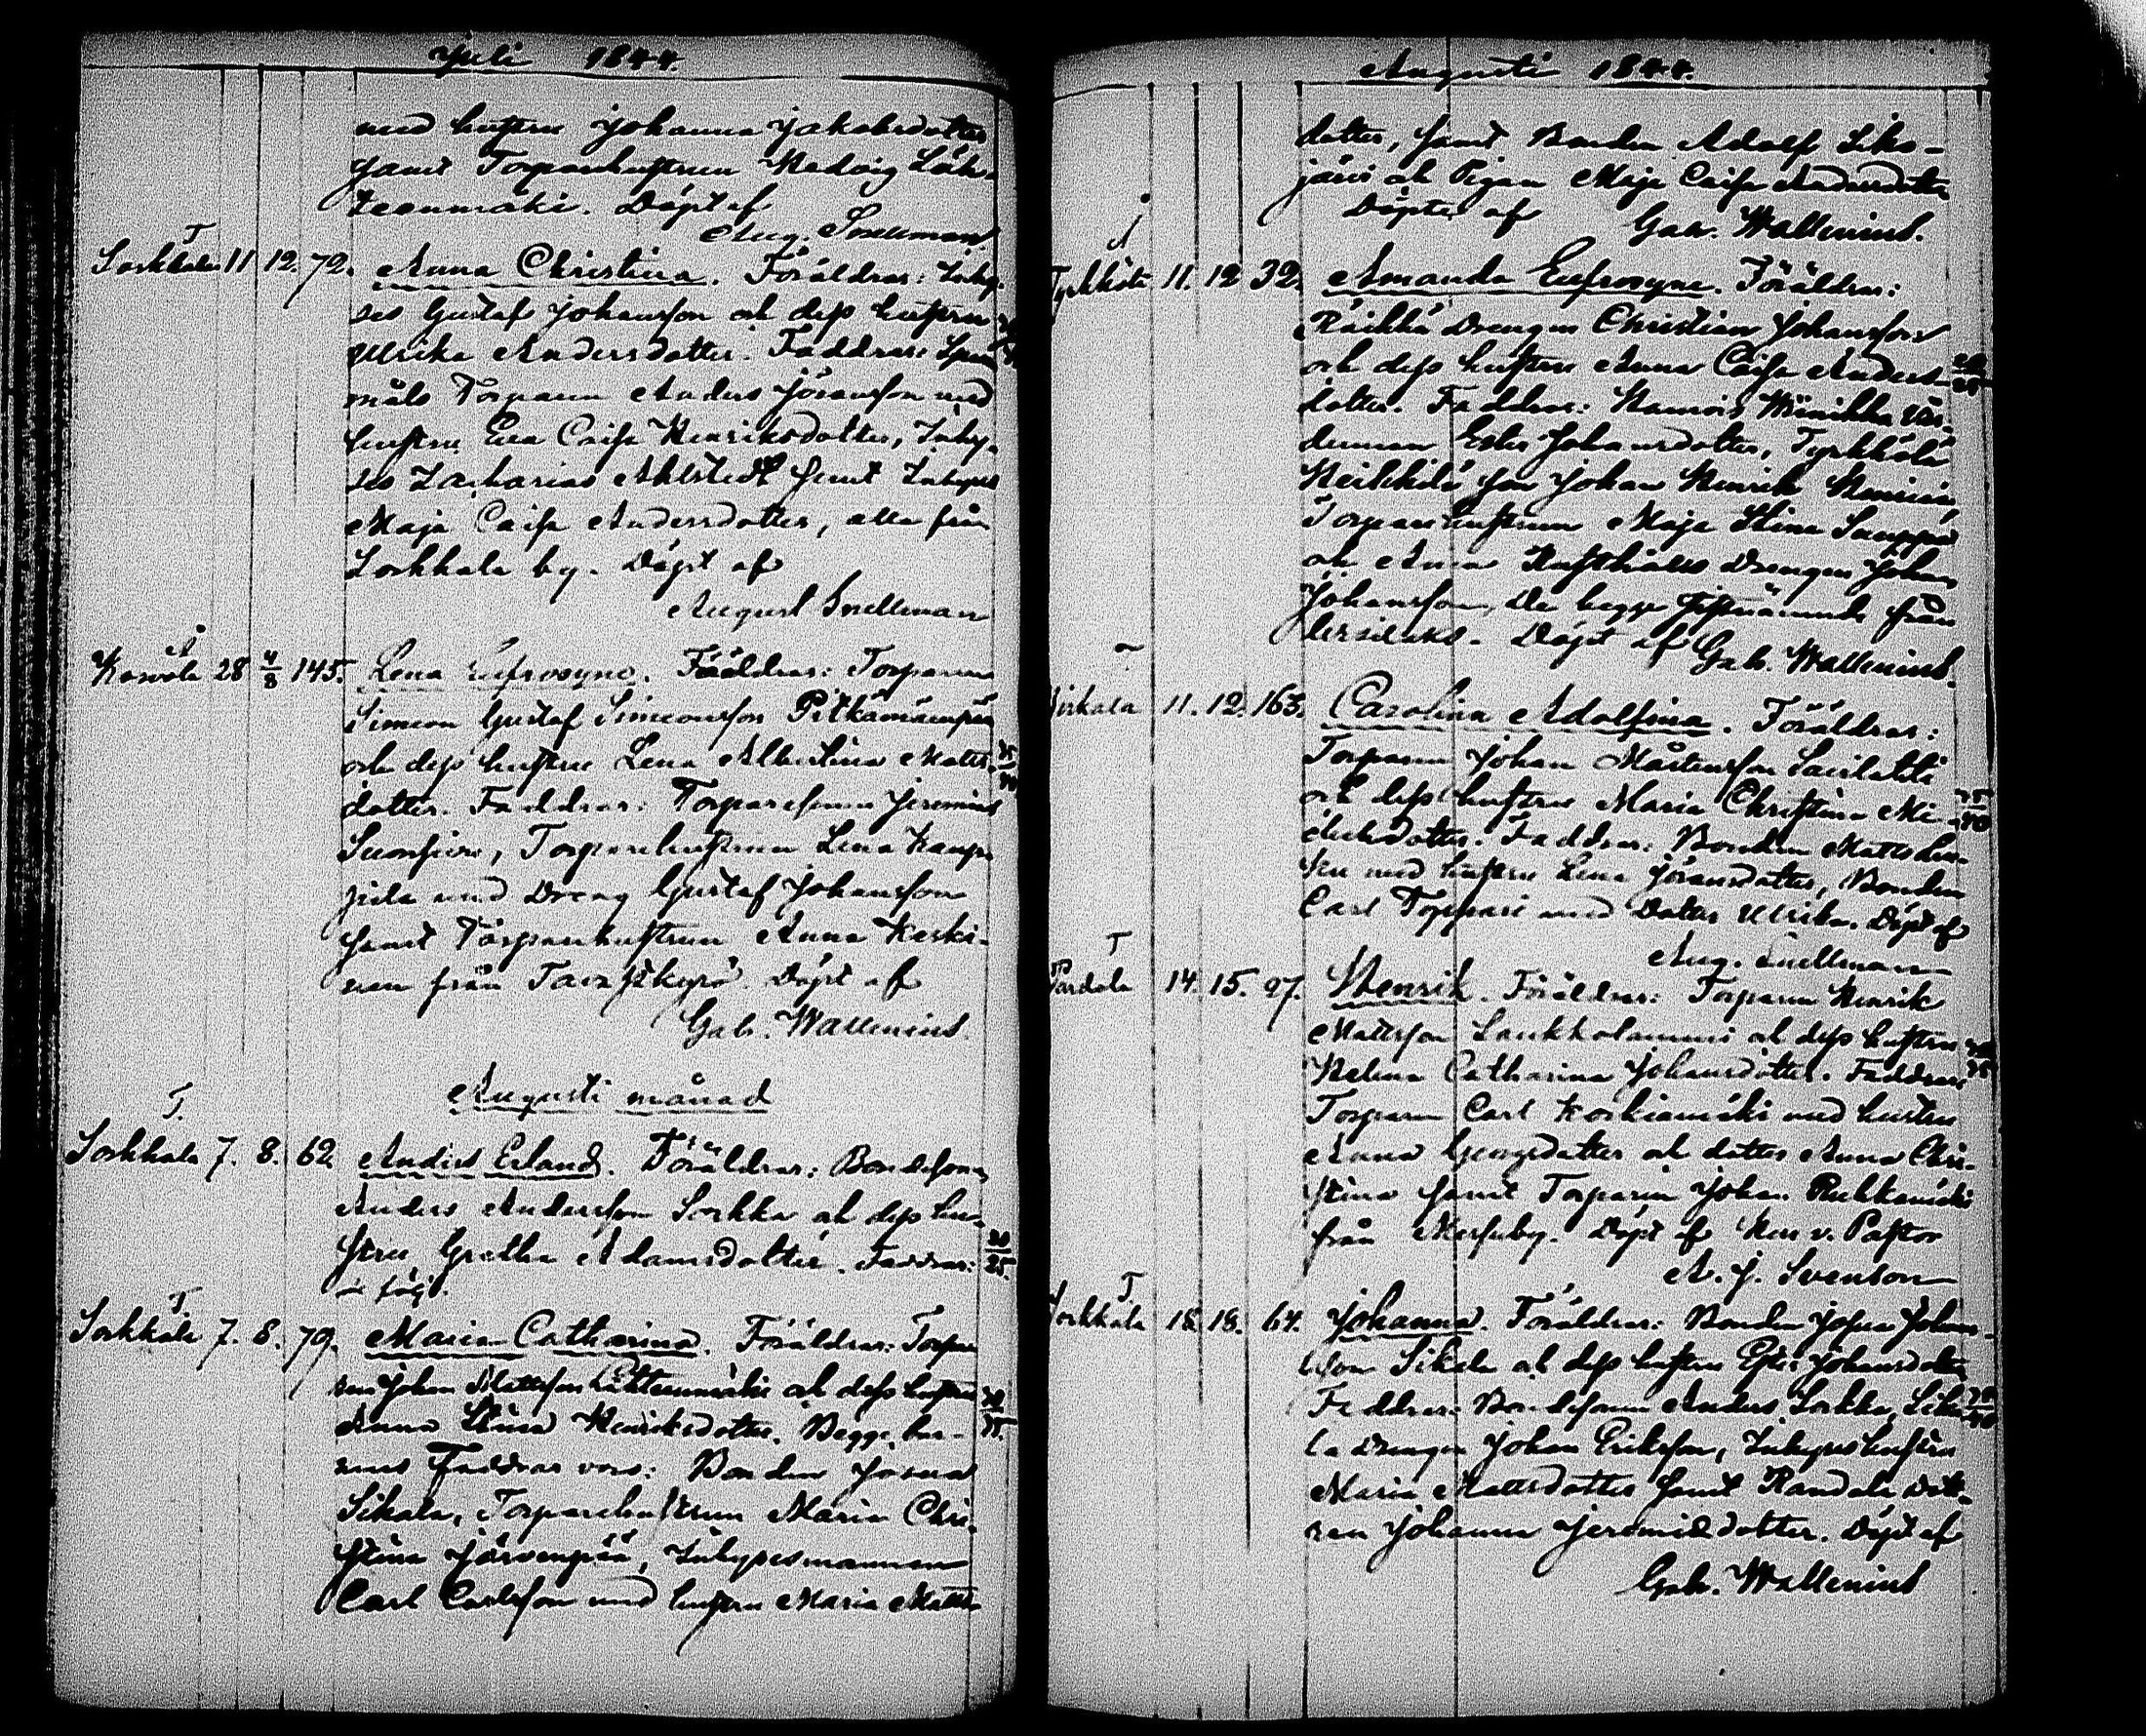 Juli 1844.
med hustru Johanna Jakobsdotter
samt Torparehustrun Hedvig Läh-
teenmäki. Döpt af
Aug. Snellman.
T
Sorkkala 11 12. 72. Anna Christina. Föräldrar: Inhy-
ses Gustaf Johansson och dess hustru
Ulrika Andersdotter. Faddrar:
måls Torparen Anders Jöransson med
hustru Eva Caisa Henriksdotter, Inhy-
ses Zacharias Ahlstedt samt Inhyses
Maja Caisa Andersdotter, alla från
Sorkkala by. Döpt af
August Snellman
Korvola 28 4/8 145. Lena Eufrosyne. Föräldrar: Torparen
Simeon Gustaf Simeonsson Pitkämäenpää
och dess hustru Lena Albertina Matts-
dotter. Faddrar: Torparesonen Jeremias
Torparehustrun Lena
med Dreng Gustaf Johansson
samt Torparehustrun Anna Keski-
nen från Tavastkyrö. Döpt af
Gab. Wallenius.
Augusti månad
T.
Sorkkala 7. 8. 62. Anders Erland. Föräldrar: Bondesonen
Anders Andersson Sorkka och dess hu-
stru Gretha Adamsdotter. Faddrar: 30/35.
T.
Sorkkala 7. 8. 79. Maria Catharina. Föräldrar: Torpa-
ren Johan Mattsson Lähteenmäki och dess hustru
Anna Stina Henriksdotter. Begge bar-
nens Faddrar voro: Bonden Josua
Sikala, Torparehustrun Maria Chri-
stina Järvenpää, Inhysesmannen
Carl Carlsson med hustru Maria Matts-
Augusti 1844.
dotter, samt Bonden Adolf Siko-
järvi och Pigan Maja Caisa Andersdotter
Döpte af Gab. Wallenius.
Tyrkkölä 11. 12 32. Amanda Eufrosyne. Föräldrar:
Räikkä Drengen Christian Johansson
och dess hustru Anna Caisa Anders-
dotter. Faddrar: Wänikkä Vär-
dinnan Ester Johansdotter, Tyrkkölä
Heikkilä son Johan Henrik
Torparehustrun Maja Stina
och Rusthålls Drengen Johan
Johansson, De begge sistnämnde från
Vesilaks. Döpt af Gab. Wallenius.
Pirkala 11. 12. 163. Carolina Adolfina. Föräldrar:
Torparen Johan Mårtensson Savilahti
och dess hustru Maria Christina Mi- 35/40
chelsdotter. Faddrar: Bonden Matts
med hustru Lena Jöransdotter, Bonden
Carl Toppari med Dotter Ulrika. Döpt af
Aug. Snellman
T
Partola 14. 15. 27. Henrik. Föräldrar: Torparen Henrik
Mattsson Laukkolammi och dess hustru
Helena Catharina Johansdotter. Faddrar:
Torparen Carl Koskiamäki med hustru
Anna Georgsdotter och dotter Anna Chri-
stina samt Torparen Johan Ruhkamäki
från by. Döpt af Herr v. Pastor
A. J. Svenson
T
Sorkkala 18. 18. 64. Johanna. Föräldrar: Bonden Josua Johans-
son Sikala och dess hustru Ester Johansdotter
Faddrar: Bondesonen Anders Sorkka, Sika-
la Drengen Johan Eriksson, Inhyseshustrun
Maria Mattsdotter samt Randala Dott-
ren Johanna Jeremiædotter. Döpt af
Gab. Wallenius